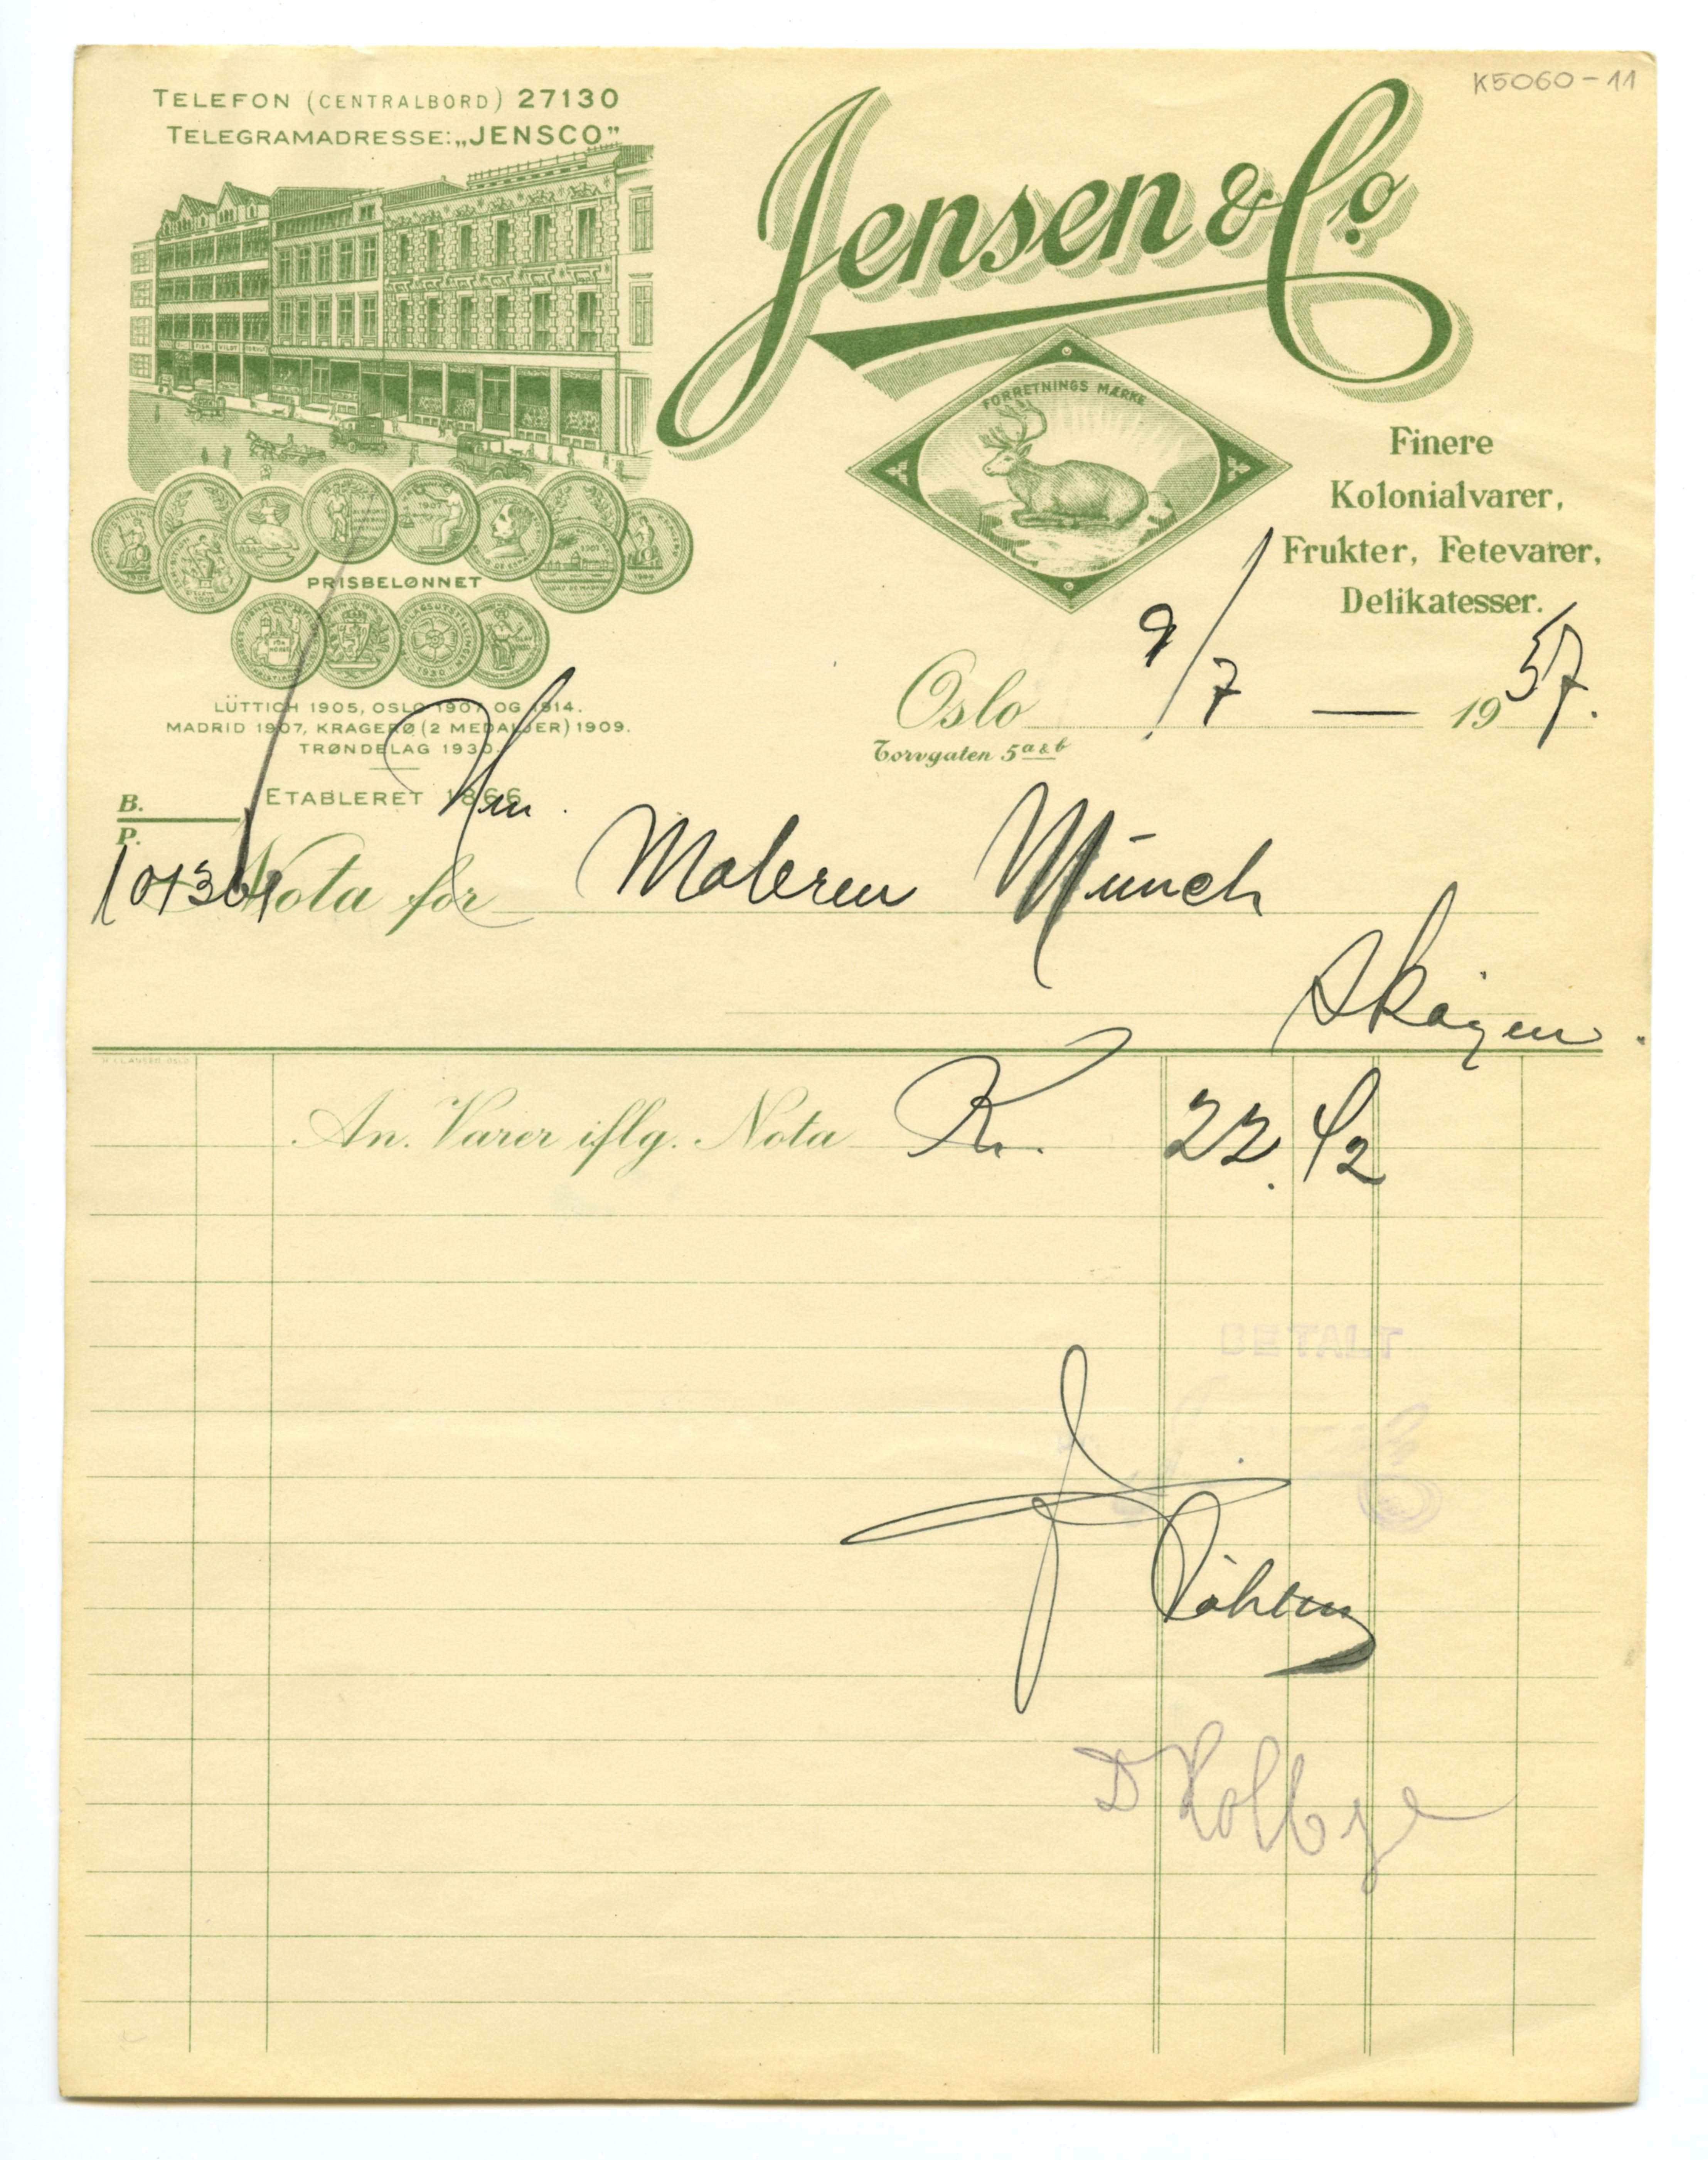 K5060-11
TELEFON (CENTRALBORD) 27130
TELEGRAMADRESSE: „JENSCO”
Jensen & Co.
FORRETNINGS MÆRKE
Finere
Kolonialvarer,
Frukter, Fetevarer,
Delikatesser.
PRISBELØNNET
LÜTTICH 1905, OSLO 1907 OG 1914.
MADRID 1907, KRAGERØ (2 MEDALJER) 1909.
TRØNDELAG 1930.
ETABLERET 1866
Oslo 9/7 — 1937.
Torvgaten 5 a & b
B.
P.
Hrn.
Nota for Maleren Münch
Skøyen.
An. Varer iflg. Nota Kr. 22.42
BETALT
D Kolbye